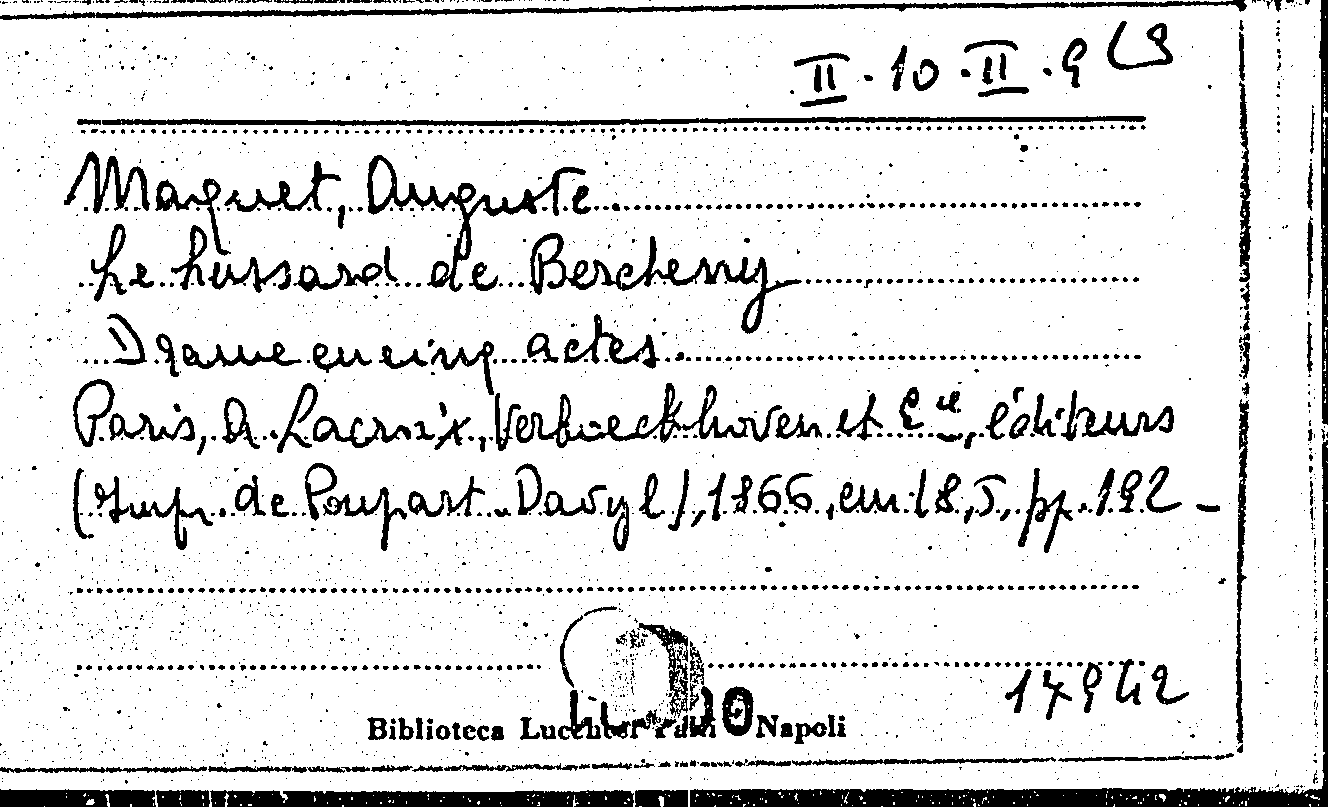 II . 10 . II . 9 (9
Maquet, Auguste.
Le hussard de Bercheny
Drame en cinq actes.
Paris, A. Lacroix, Verboeckhoven et Cie, éditeurs
(Imp. de Poupart-Davyl), 1866, cm 18,5, pp. 192 -
17942
Biblioteca Lucchesi Palli Napoli